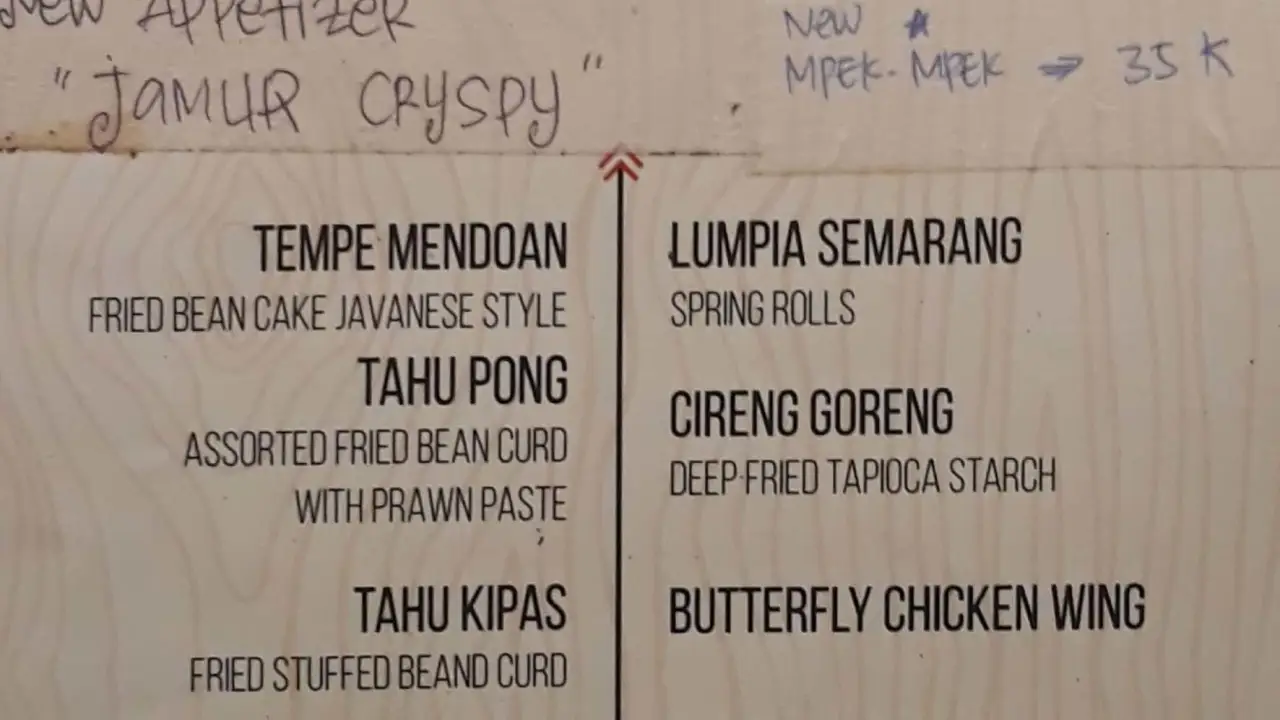 New APPetizer
"JAMUR CRYSPY"
New
MPEK-MPEK → 35 K
TEMPE MENDOAN
FRIED BEAN CAKE JAVANESE STYLE
TAHU PONG
ASSORTED FRIED BEAN CURD
WITH PRAWN PASTE
TAHU KIPAS
FRIED STUFFED BEAND CURD
LUMPIA SEMARANG
SPRING ROLLS
CIRENG GORENG
DEEP-FRIED TAPIOCA STARCH
BUTTERFLY CHICKEN WING